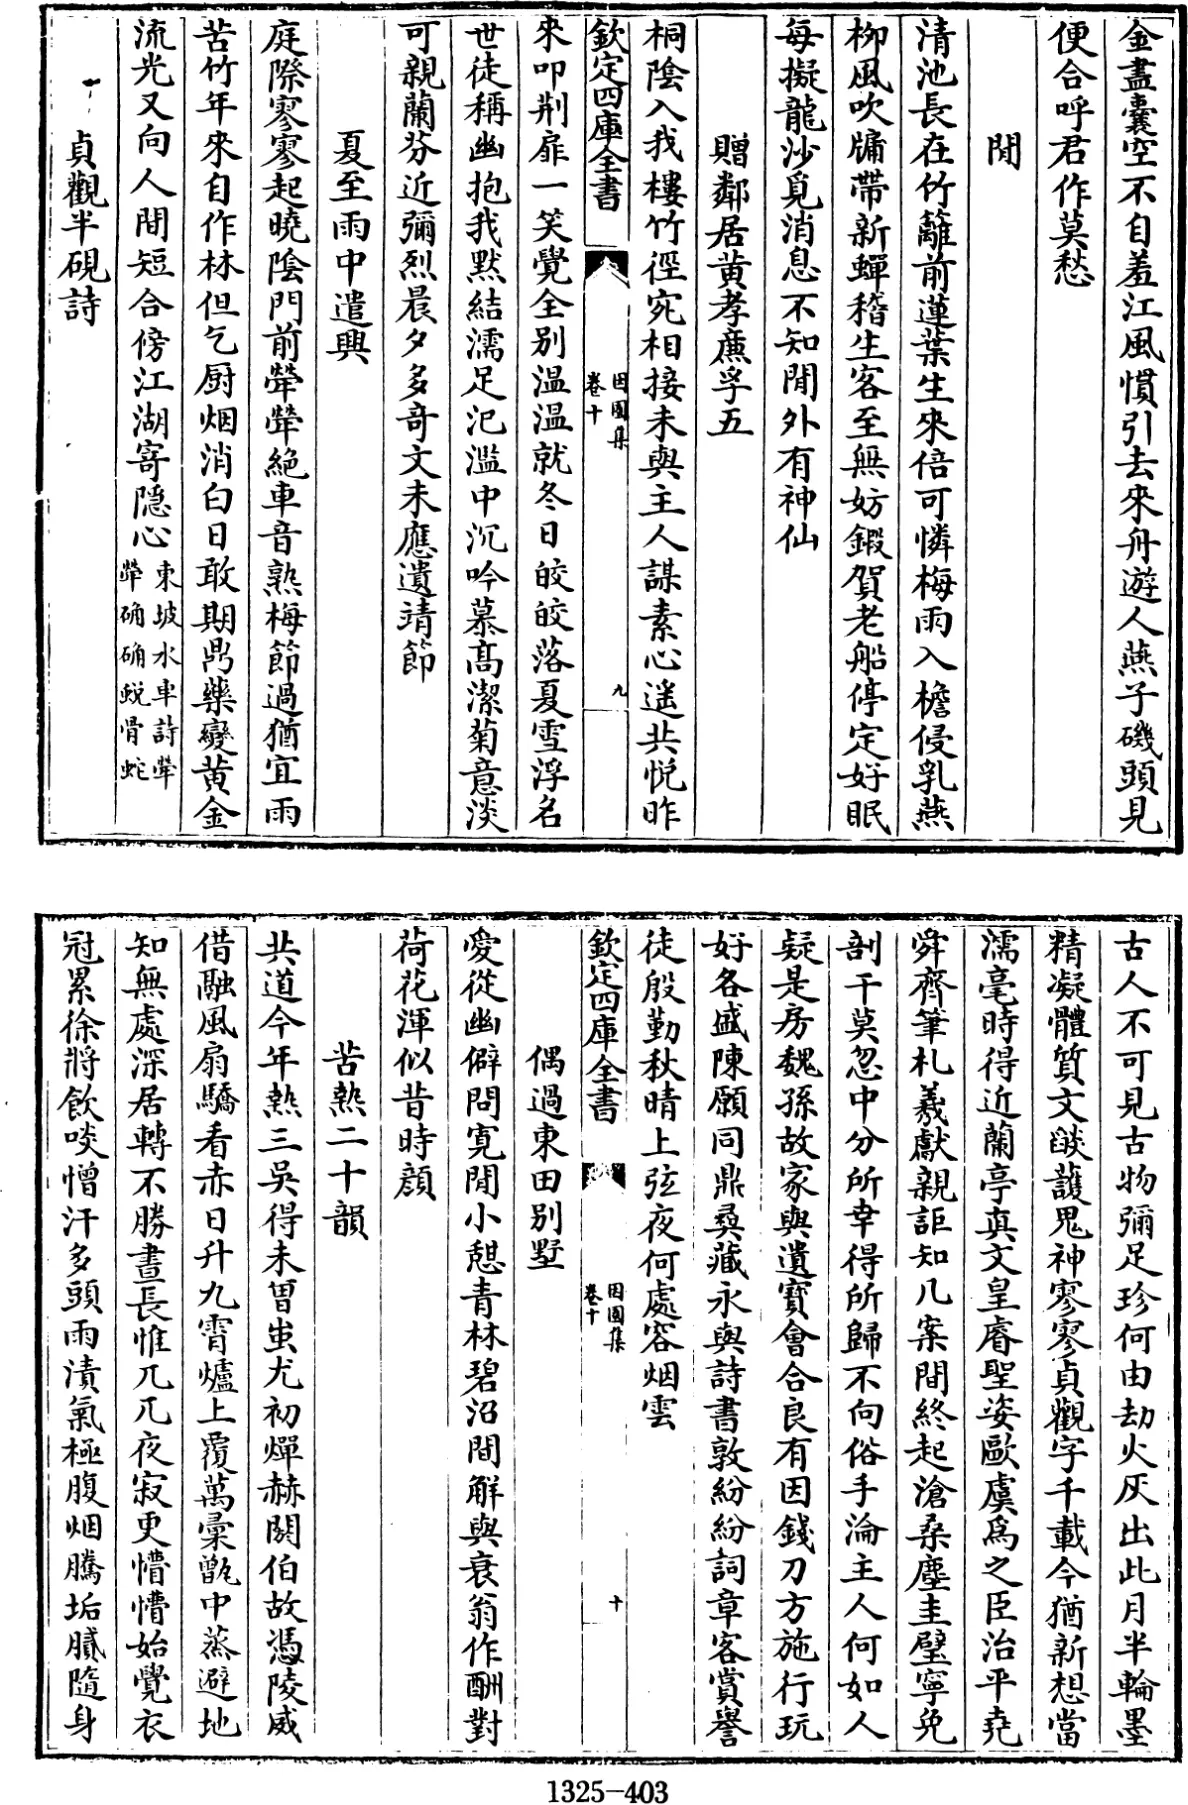 金盡囊空不自羞江風慣引去來舟遊人燕子磯頭見
便合呼君作莫愁
閒
清池長在竹籬前蓮葉生來倍可憐梅雨入檐侵乳燕
柳風吹牖帶新蟬稽生客至無妨鍜賀老船停定好眠
每擬龍沙覓消息不知閒外有神仙
贈鄰居黄孝廉孚五
桐陰入我樓竹徑宛相接未與主人謀素心遥共悦昨
欽定四庫全書
因園集
卷十
九
來叩荆扉一笑覺全别温温就冬日皎皎落夏雪浮名
世徒稱幽抱我黙結濡足氾濫中沉吟慕髙潔菊意淡
可親蘭芬近彌烈晨夕多奇文未應遺靖節
夏至雨中遣興
庭際寥寥起曉陰門前犖犖絶車音熟梅節過猶宜雨
苦竹年來自作林但乞厨烟消白日敢期鼎藥變黄金
流光又向人間短合傍江湖寄隐心
東坡水車詩犖
犖确确蜕骨蛇
貞觀半硯詩
古人不可見古物彌足珍何由劫火灰出此月半輪墨
精凝體質文燄護鬼神寥寥貞觀字千載今猶新想當
濡毫時得近蘭亭真文皇睿聖姿歐虞為之臣治平堯
舜齊筆札羲獻親詎知几案間終起滄桑塵圭璧寧免
剖干莫忽中分所幸得所歸不向俗手淪主人何如人
疑是房魏孫故家與遺寳會合良有因錢刀方施行玩
好各盛陳願同鼎彛藏永與詩書敦紛紛詞章客賞譽
徒殷勤秋晴上弦夜何處容烟雲
欽定四庫全書
因園集
卷十
十
偶過東田别墅
愛從幽僻問寛閒小憇青林碧沼間解與衰翁作酬對
荷花渾似昔時顔
苦熱二十韻
共道今年熱三吳得未曽蚩尤初燀赫閼伯故憑陵威
借融風扇驕看赤日升九霄爐上覆萬彚甑中蒸避地
知無處深居轉不勝晝長惟兀兀夜寂更懵懵始覺衣
冠累徐將飲啖憎汗多頭雨漬氣極腹烟騰垢膩隨身
1325-403